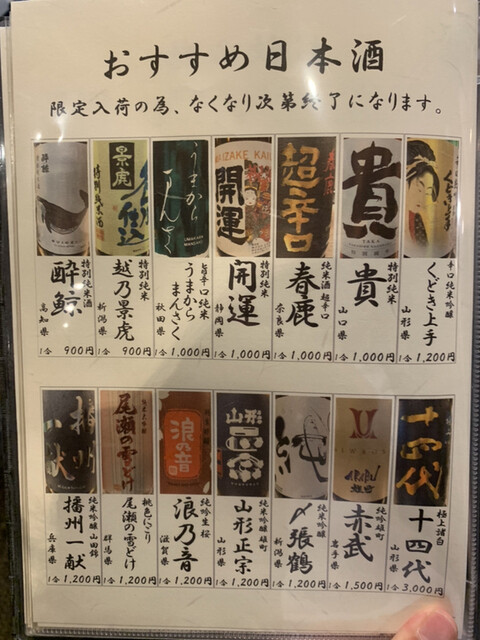 おすすめ日本酒
限定入荷の為、なくなり次第終了になります。
辛口 純米吟醸
くどき上手
山形県
1合 1,200円
貴
特別純米
貴
山口県
1合 1,000円
超辛口
純米酒 超辛口
春鹿
奈良県
1合 1,000円
開運
特別純米
開運
静岡県
1合 1,000円
うまから
まんさく
旨辛口 純米
うまから
まんさく
秋田県
1合 1,000円
景虎
特別純米酒
特別純米
越乃景虎
新潟県
1合 900円
酔鯨
特別純米酒
酔鯨
高知県
1合 900円
十四代
極上諸白
十四代
山形県
1合 3,000円
AKABU
純吟雄町
赤武
岩手県
1合 1,500円
純
純米吟醸
〆張鶴
新潟県
1合 1,200円
山形
正宗
純米吟醸 雄町
山形正宗
山形県
1合 1,200円
浪の音
純吟生 桜
浪乃音
滋賀県
1合 1,200円
尾瀬の雪どけ
桃色にごり
尾瀬の雪どけ
群馬県
1合 1,200円
播州
一献
純米吟醸 山田錦
播州一献
兵庫県
1合 1,200円